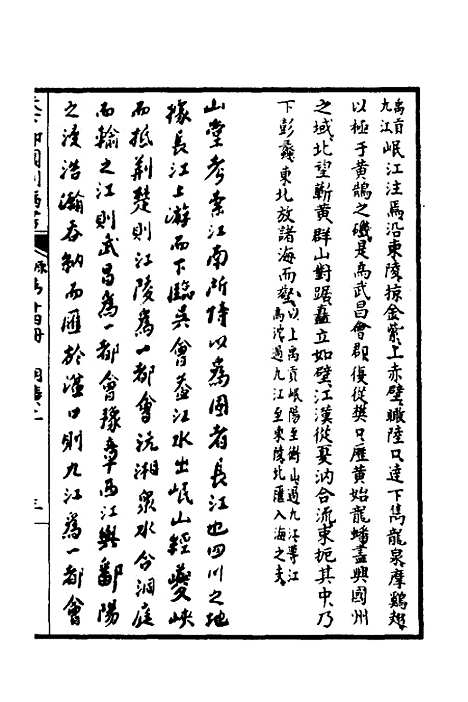 禹貢九江岷江注焉沿東陵掠金紫上赤壁瞰陸口達下雋龍泉摩鷄翅
以極于黃鵠之磯是爲武昌會郡復從樊口歷黃始龍蟠盡興國州
之域北望蘄黃群山對踞矗立如壁江漢從夏汭合流東扼其中乃
下彭蠡東北放諸海而 以上禹貢岷陽至衡山過九江導江
爲沱過九江至東陵北匯入海之支
山堂考索江南所恃以爲固者長江也四川之地
據長江上游而下臨吳會蓋江水出岷山經夔峽
而抵荆楚則江陵爲一都會沅湘衆水合洞庭
而輸之江則武昌爲一都會豫章西江與鄱陽
之浸浩瀚吞納而匯於湓口則九江爲一都會
天下郡國利病書 原 第十四冊 三